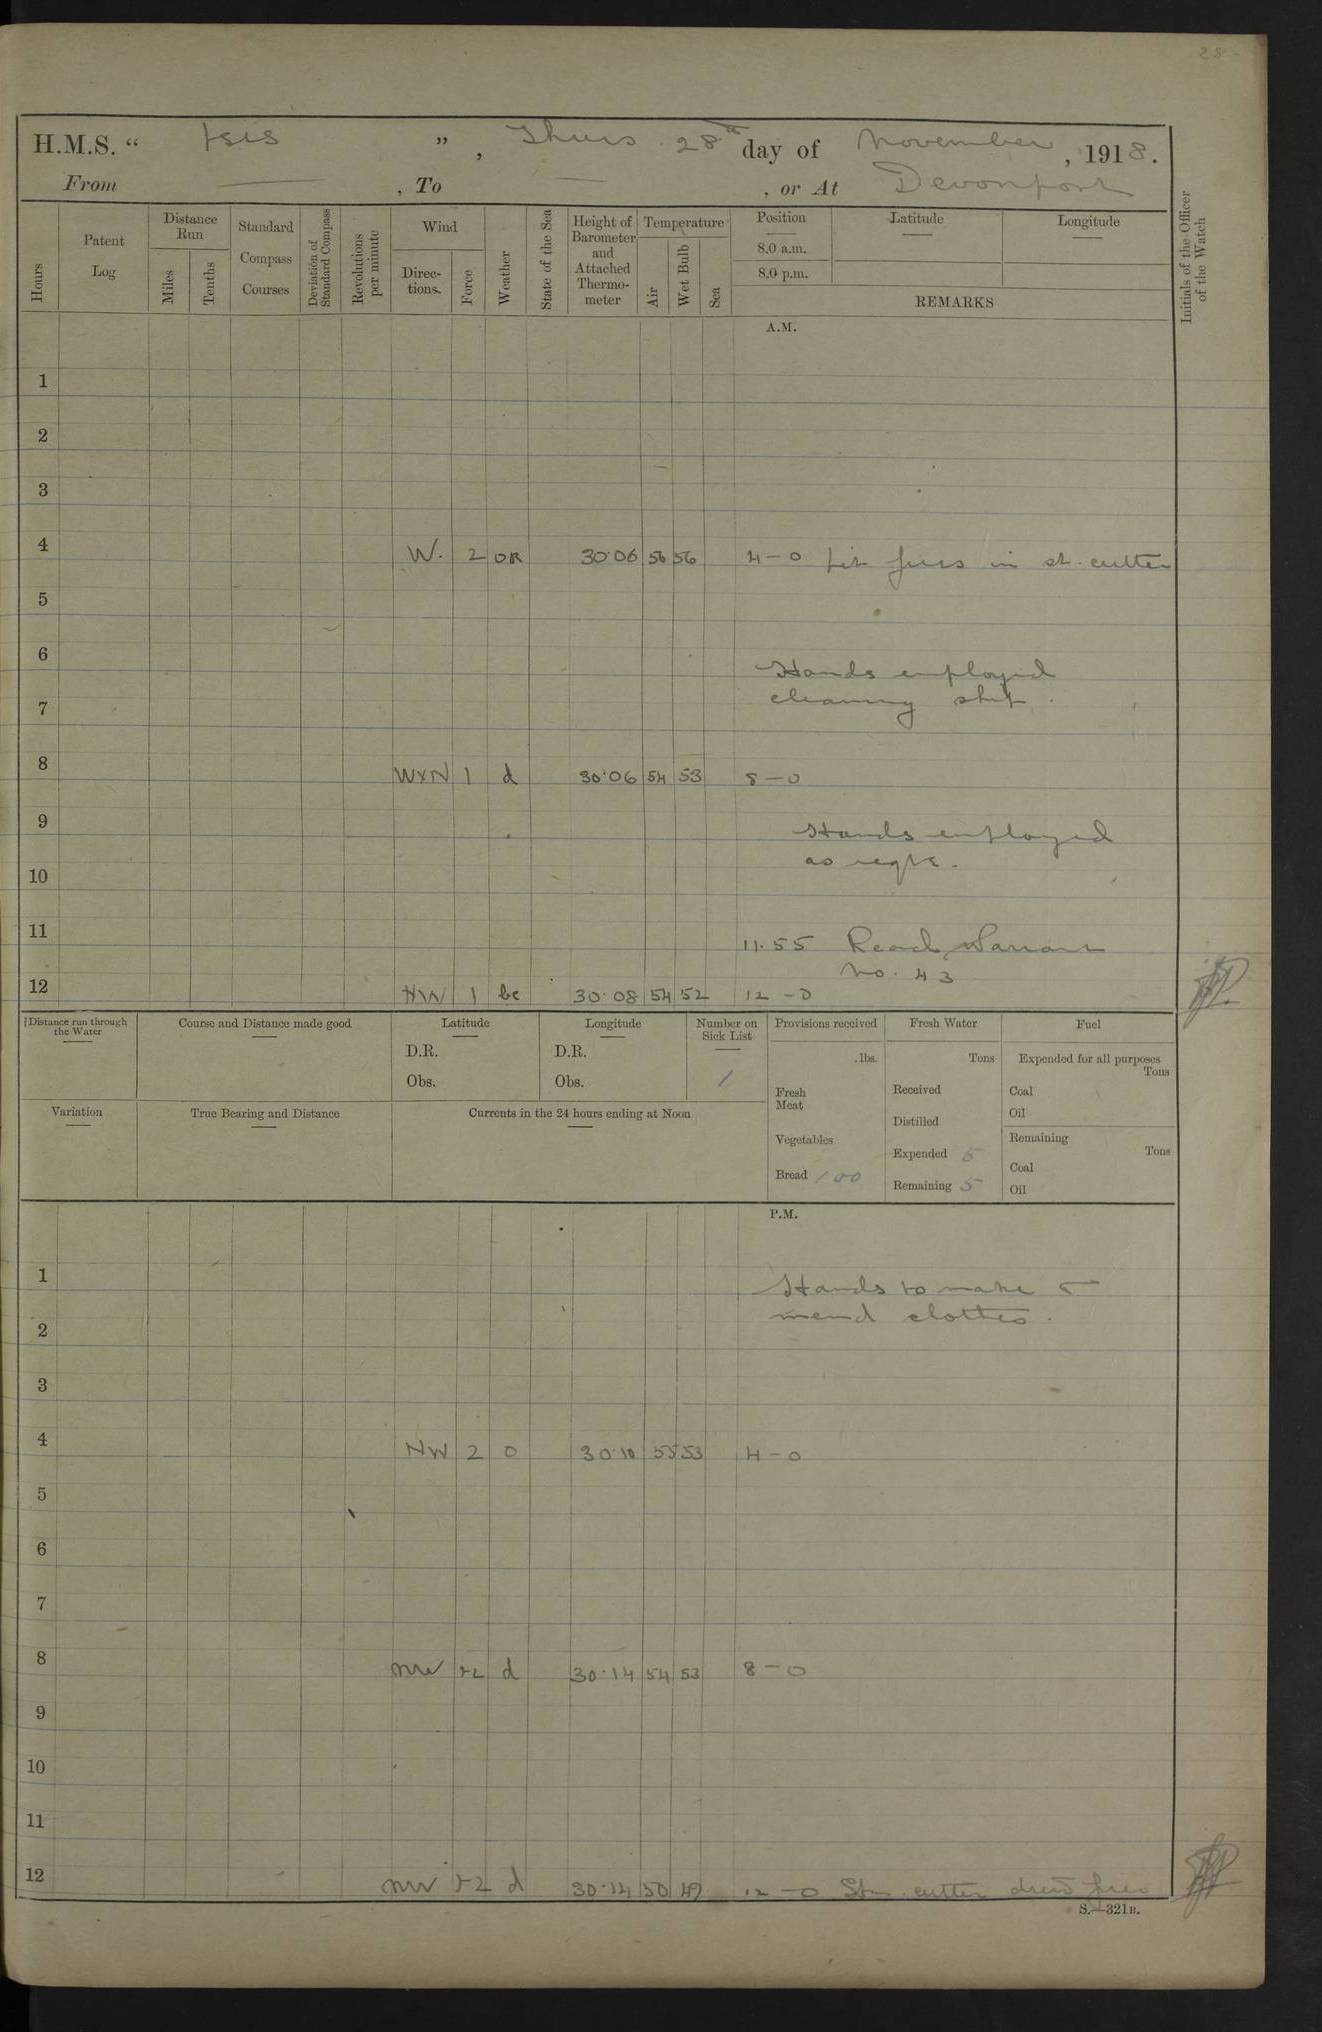 28
H.M.S. “ Isis ”, Thurs 28th day of November, 1918.
From — , To — , or At Devonport
Hours
Patent Log
Distance Run
Miles
Tenths
Standard Compass Courses
Deviation of Standard Compass
Revolutions per minute
Wind
Direc-tions.
Force
Weather
State of the Sea
Height of Barometer and Attached Thermo-meter
Temperature
Air
Wet Bulb
Sea
Position
8.0 a.m.
8.0 p.m.
Latitude
Longitude
REMARKS
Initials of the Officer of the Watch
A.M.
1
2
3
4 W. 2 OR 30·06 56 56 4-0 Lit fires in st. cutter
5
6
Hands employed
7 cleaning ship.
8 WxN 1 d 30·06 54 53 8-0
9 Hands employed
as reqte.
10
11 11.55 Read Warrant
No. 43
12 NW 1 bc 30·08 54 52 12-0
Distance run through the Water
Course and Distance made good
Latitude
D.R.
Obs.
Longitude
D.R.
Obs.
Number on Sick List
1
Provisions received
lbs.
Fresh Meat
Vegetables
Bread 100
Fresh Water
Tons
Received
Distilled
Expended 5
Remaining 5
Fuel
Expended for all purposes
Tons
Coal
Oil
Remaining
Tons
Coal
Oil
Variation
True Bearing and Distance
Currents in the 24 hours ending at Noon
P.M.
1 Hands to make &
2 mend clothes.
3
4 NW 2 0 30·10 55 53 4-0
5
6
7
8 NW 1-2 d 30·14 54 53 8-0
9
10
11
12 NW 1-2 d 30·14 50 49 12-0 Stm cutter drew fires
S.—321B.